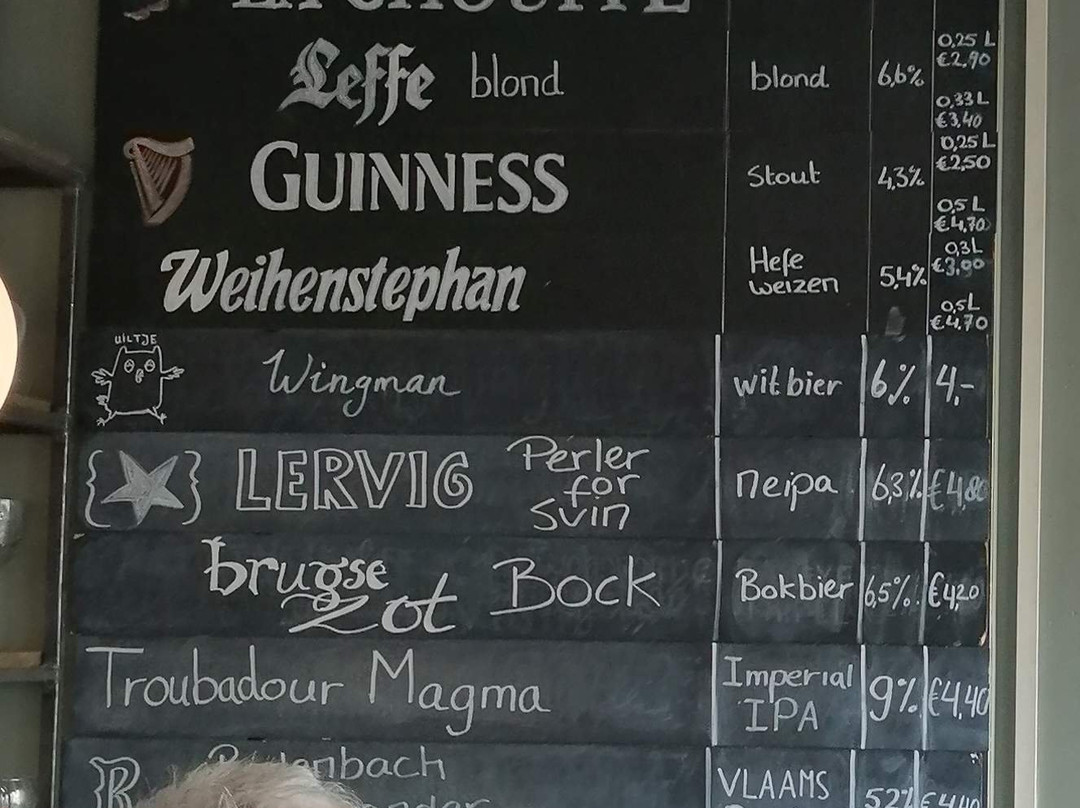 LA CHOUFFE
Leffe blond blond 6,6% 0,25 L €2,90 0,33 L €3,40
GUINNESS Stout 4,3% 0,25 L €2,50 0,5 L €4,70
Weihenstephan Hefe weizen 5,4% 0,3L €3,90 0,5L €4,70
UILTJE
Wingman witbier 6% 4,-
{ } LERVIG Perler for Svin neipa 6,3% €4,80
brugse zot Bock Bokbier 6,5% €4,20
Troubadour Magma Imperial IPA 9% €4,40
R VLAAMS